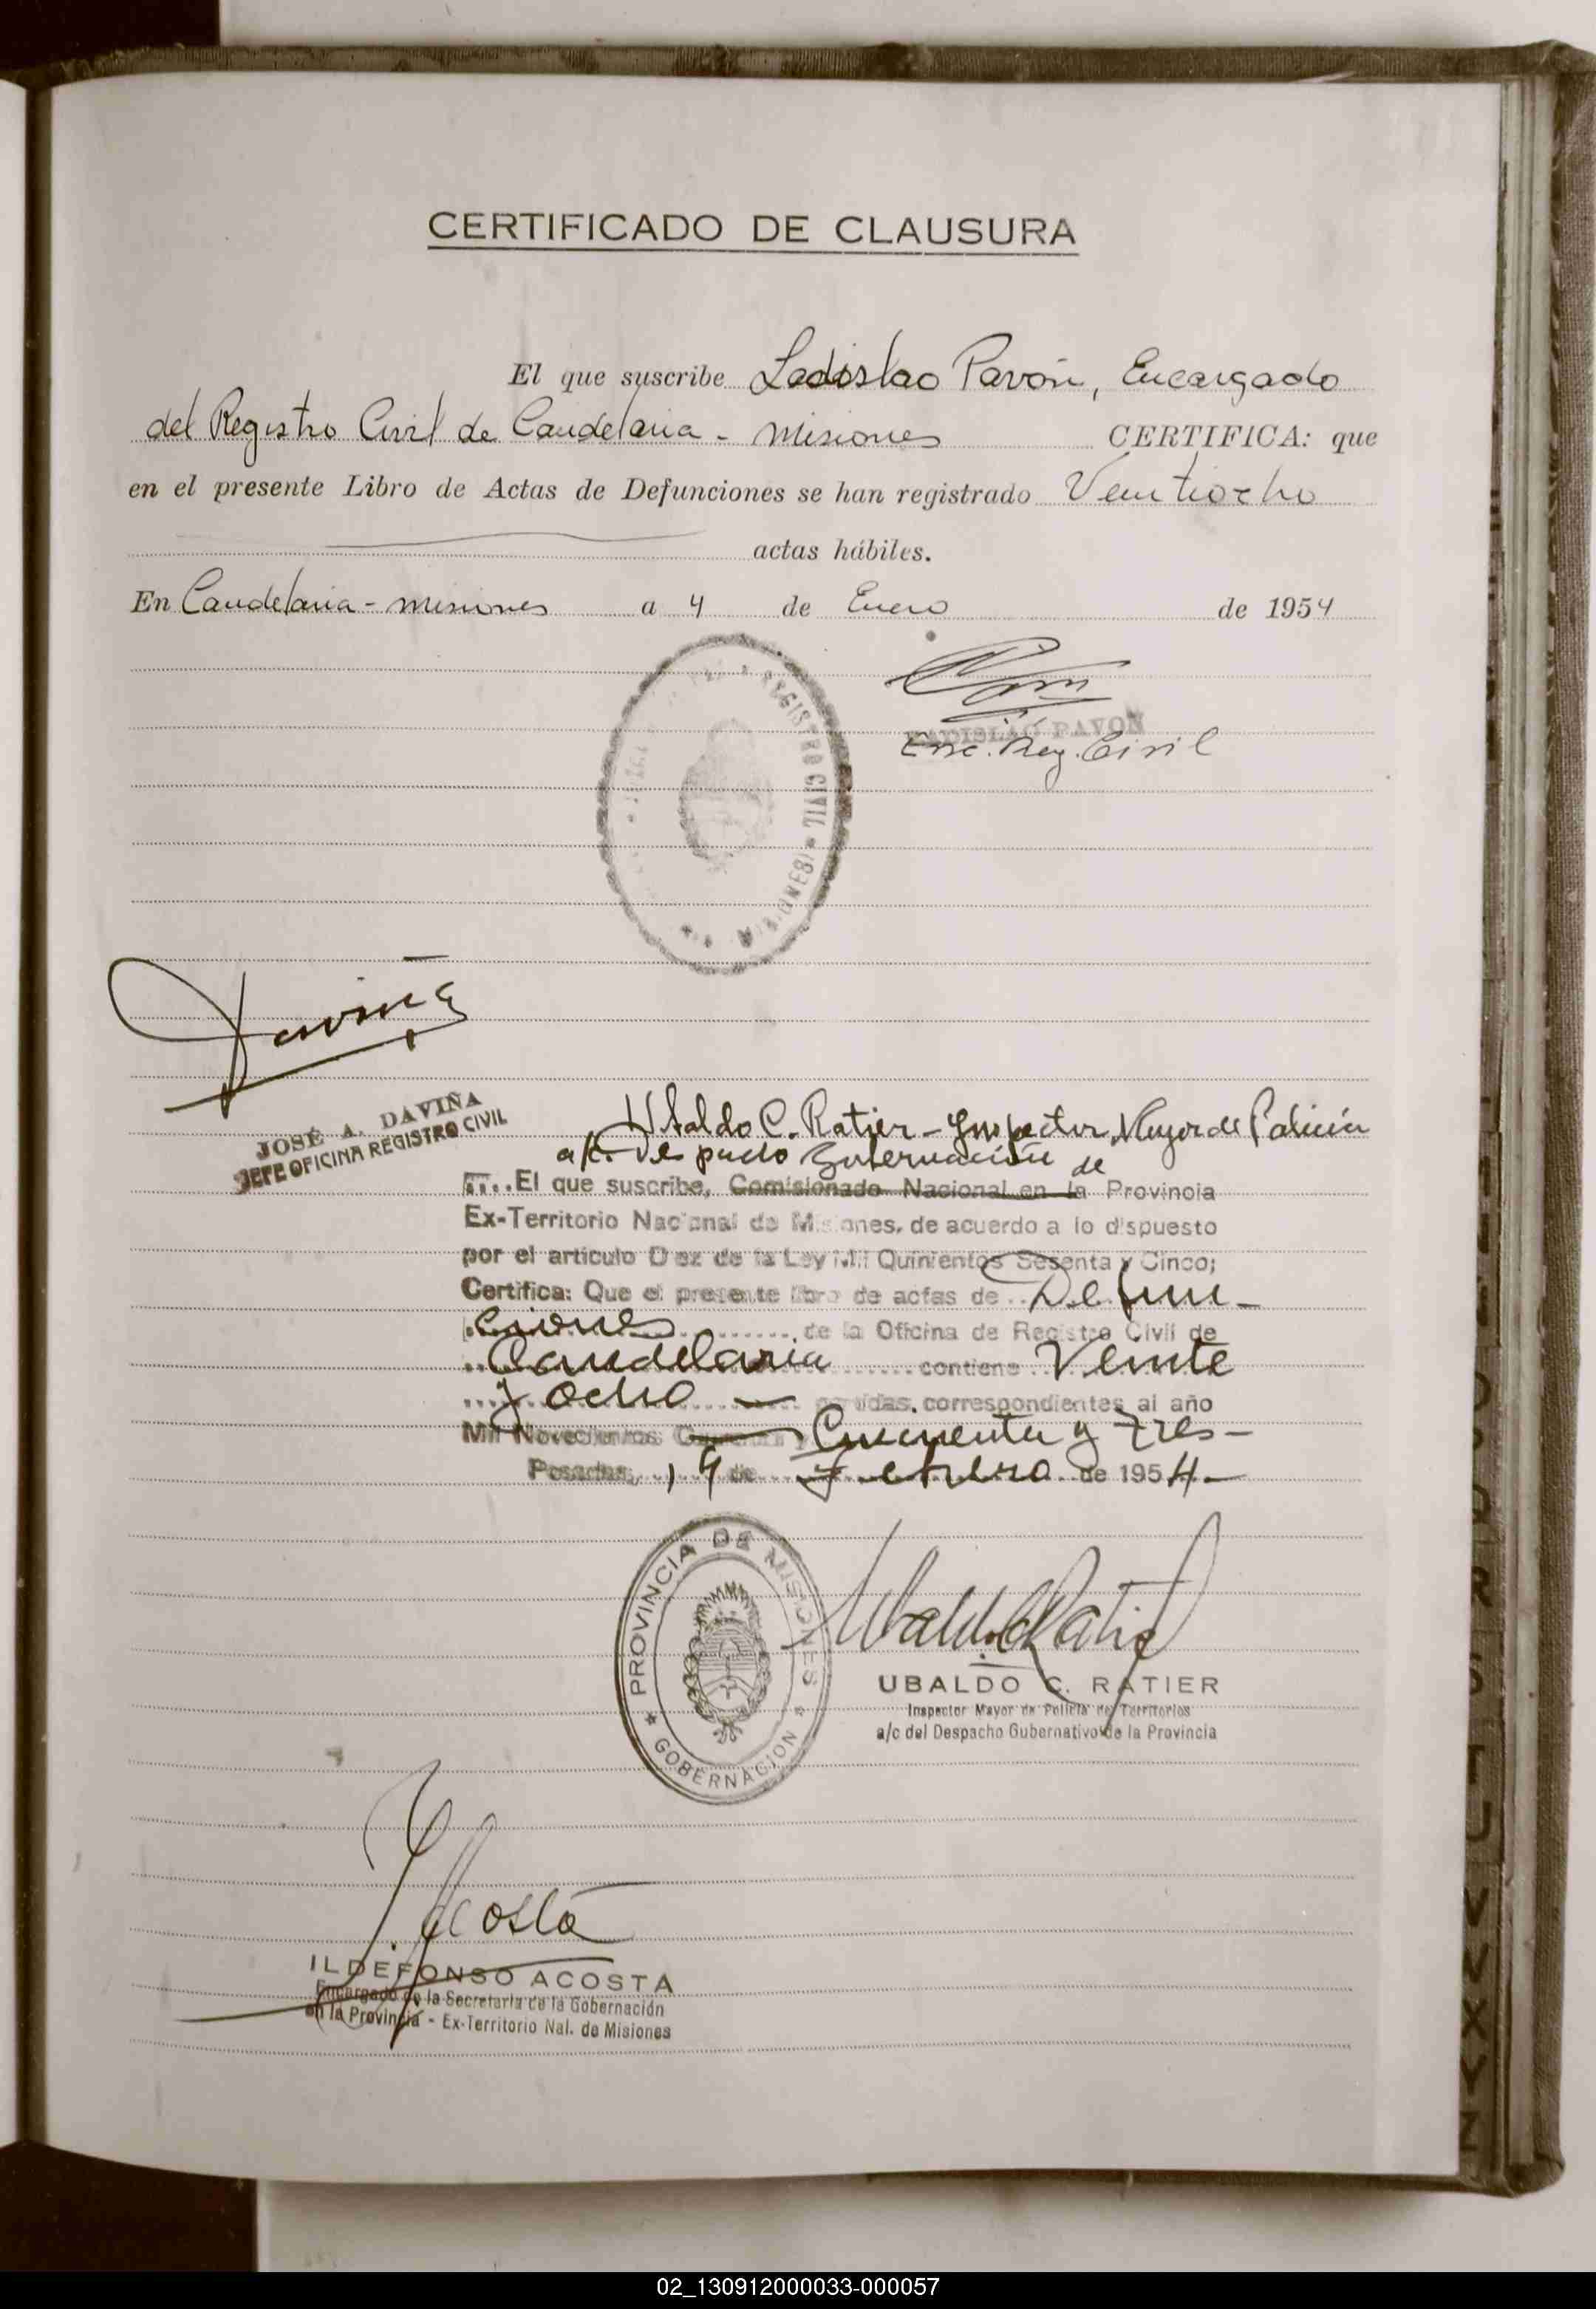 CERTIFICADO DE CLAUSURA
El que suscribe Ladislao Pavón, Encargado
del Registro Civil de Candelaria - Misiones CERTIFICA: que
en el presente Libro de Actas de Defunciones se han registrado Veintiocho
actas hábiles.
En Candelaria - Misiones a 4 de Enero de 1954
REGISTRO CIVIL
LADISLAO PAVON
Enc. Reg. Civil
Daviña
JOSÉ A. DAVIÑA
JEFE OFICINA REGISTRO CIVIL
Ubaldo C. Ratier - Inspector Mayor de Policía
a/c. Despacho Gobernación de
El que suscribe, Comisionado Nacional en la Provincia
Ex-Territorio Nacional de Misiones, de acuerdo a lo dispuesto
por el artículo Diez de la Ley Mil Quinientos Sesenta y Cinco;
Certifica: Que el presente libro de actas de Defun-
ciones de la Oficina de Registro Civil de
Candelaria contiene Veinte
y ocho — partidas, correspondientes al año
Mil Novecientos Cincuenta y Tres -
Posadas, 19 de Febrero de 1954.-
PROVINCIA DE MISIONES
GOBERNACION
Ubaldo C. Ratier
UBALDO C. RATIER
Inspector Mayor de Policía de Territorios
a/c del Despacho Gubernativo de la Provincia
I Acosta
ILDEFONSO ACOSTA
Encargado de la Secretaría de la Gobernación
en la Provincia - Ex-Territorio Nal. de Misiones
02_130912000033-000057